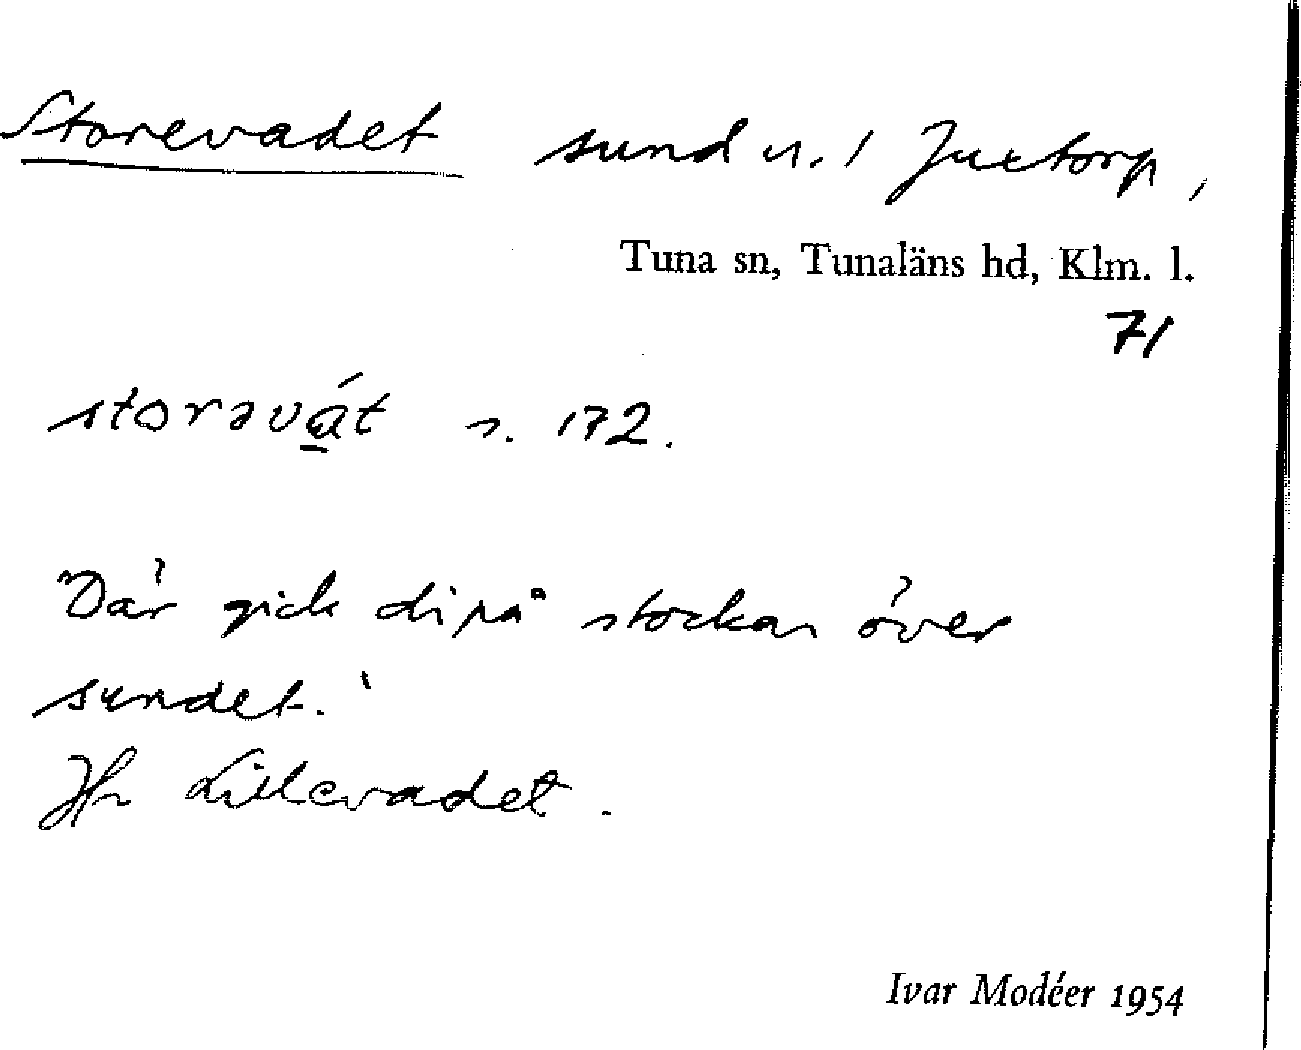 Storevadet sund n. / Juxtorp,
Tuna sn, Tunaläns hd, Klm. l.
71
storəvát s. 172.
"Där gick di på stockar över
sundet.'
Jfr Lillevadet.
Ivar Modéer 1954